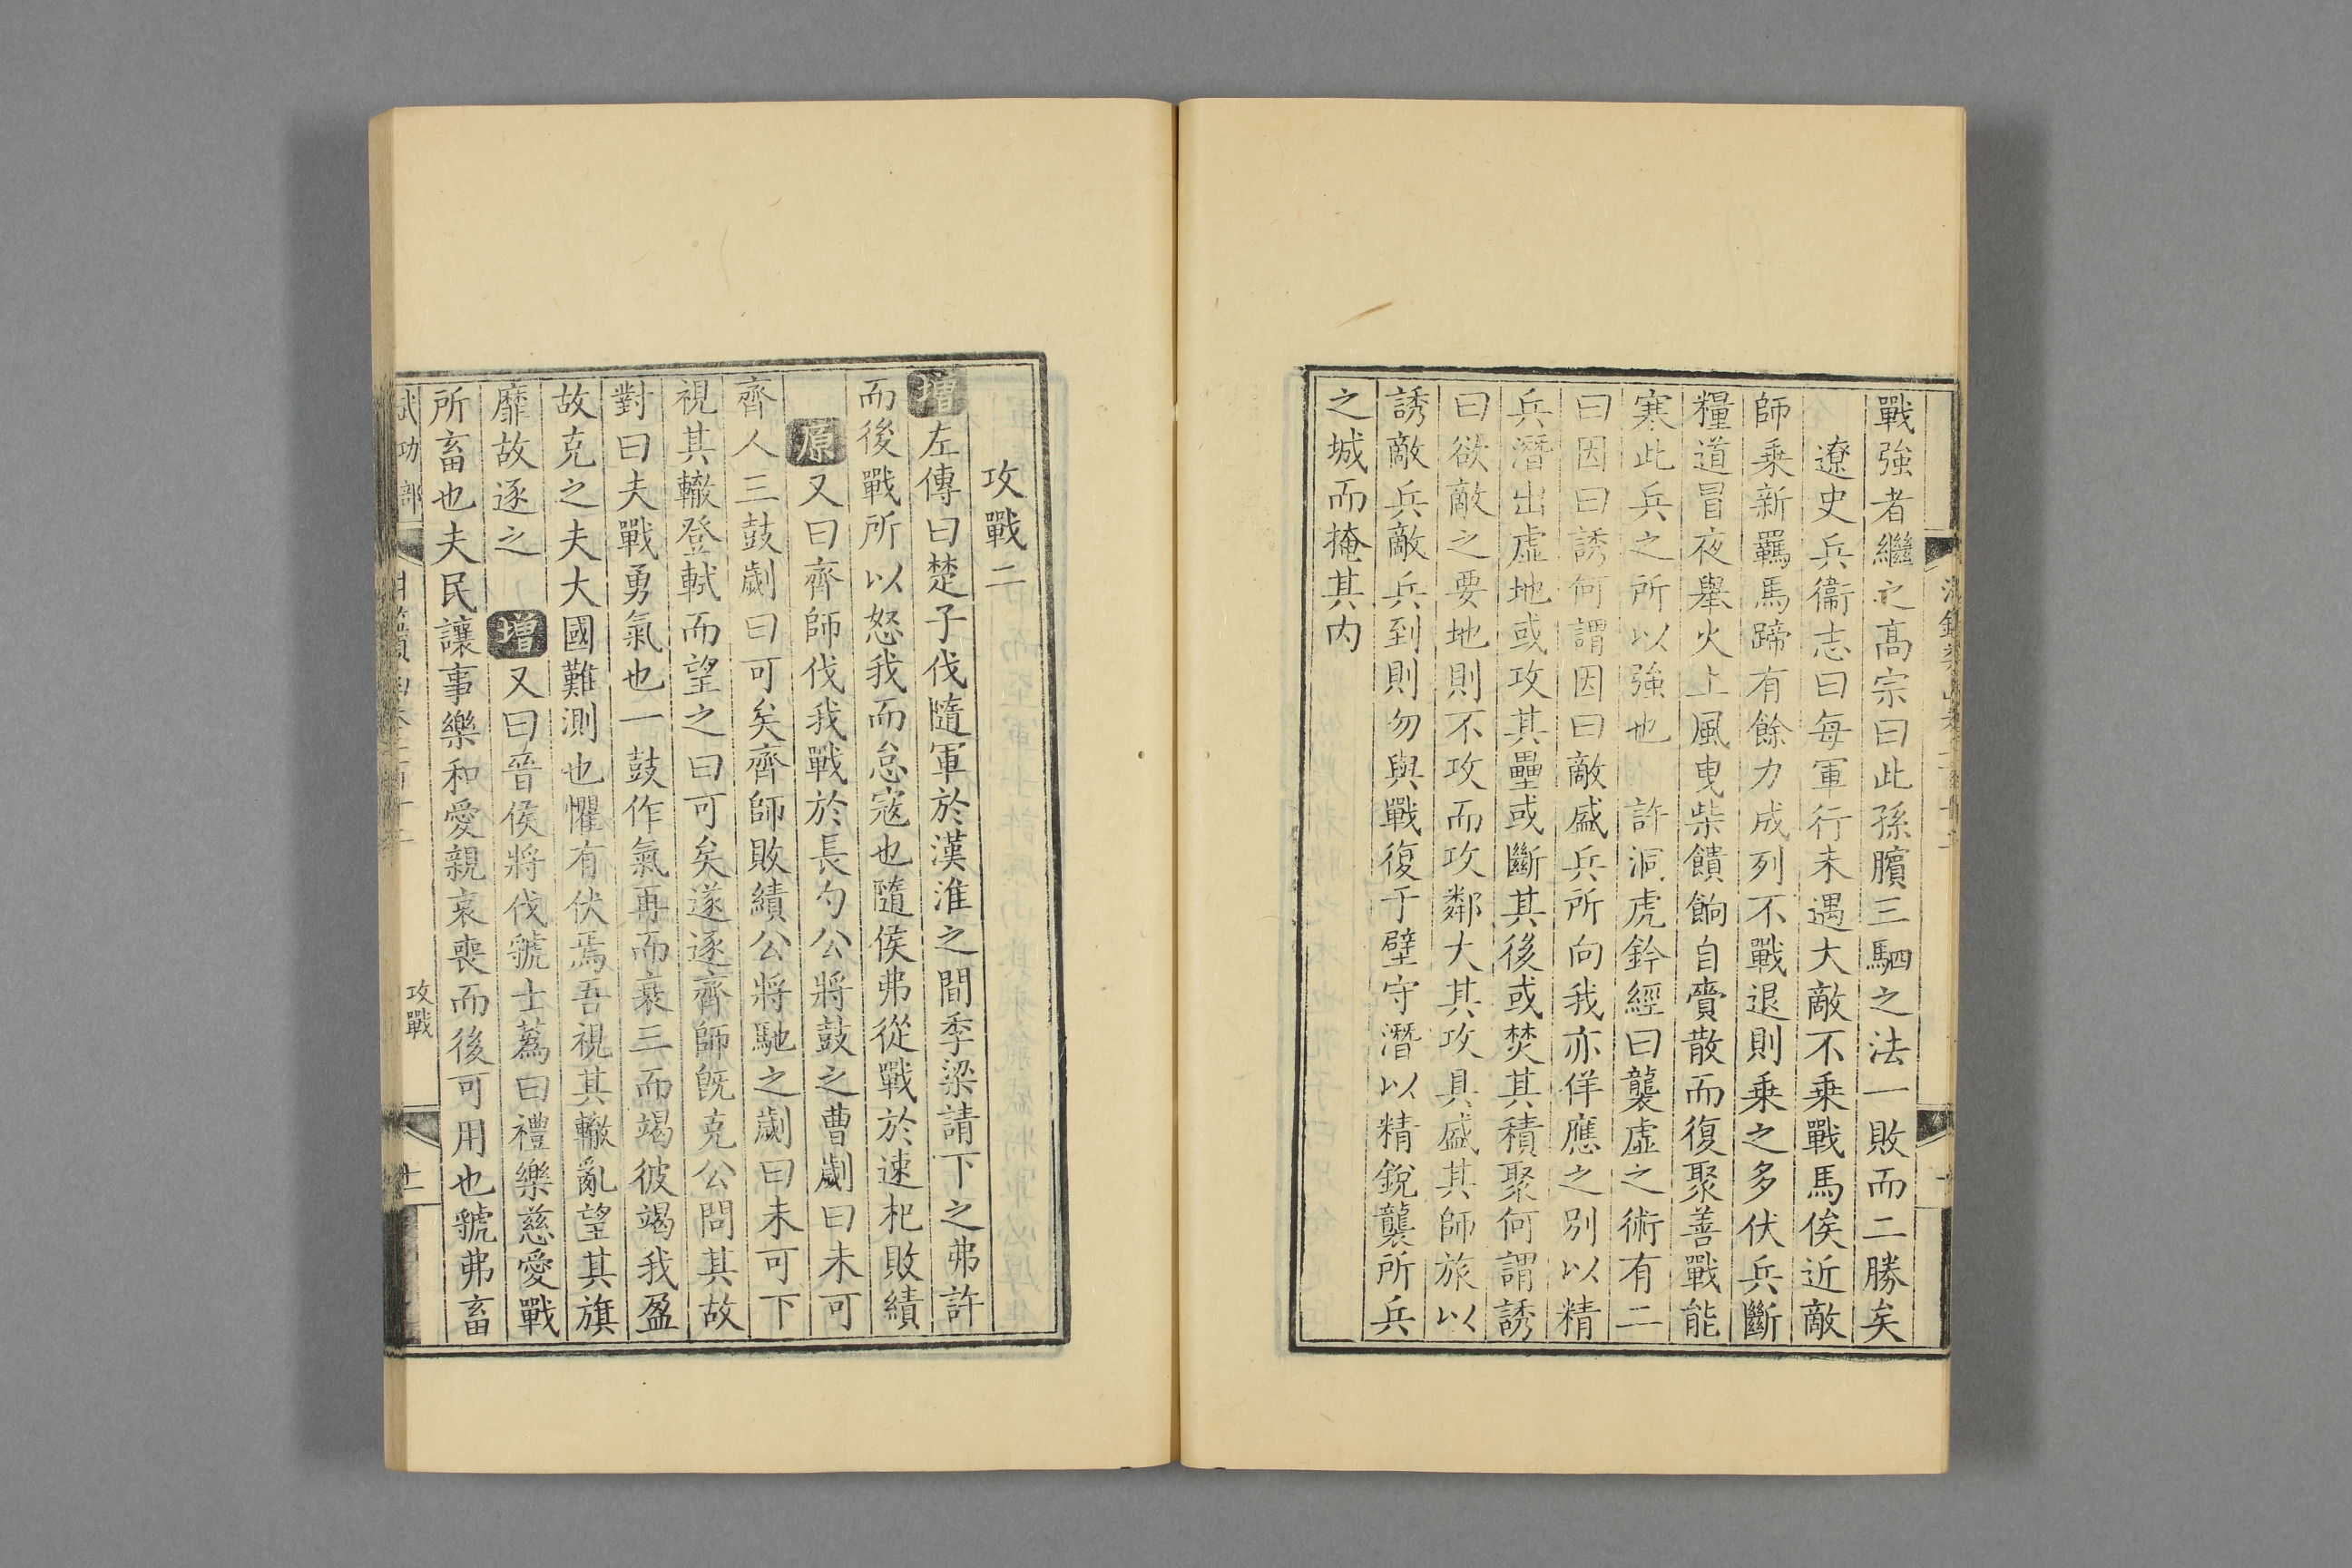 戰強者繼之高宗曰此孫臏三駟之法一敗而二勝矣
遼史兵衞志曰每軍行未遇大敵不乗戰馬俟近敵
師乗新羈馬蹄有餘力成列不戰退則乗之多伏兵斷
糧道冒夜舉火上風曳柴饋餉自賫散而復聚善戰能
寒此兵之所以強也 許洞虎鈐經曰襲虛之術有二
曰因曰誘何謂因曰敵盛兵所向我亦佯應之別以精
兵潛出虛地或攻其壘或斷其後或焚其積聚何謂誘
曰欲敵之要地則不攻而攻鄰大其攻具盛其師旅以
誘敵兵敵兵到則勿與戰復于壁守潛以精銳襲所兵
之城而掩其内
攻戰二
增左傳曰楚子伐隨軍於漢淮之間季梁請下之弗許
而後戰所以怒我而怠寇也隨侯弗從戰於速杞敗績
原又曰齊師伐我戰於長勺公將鼓之曹劌曰未可
齊人三鼓劌曰可矣齊師敗績公將馳之劌曰未可下
視其轍登軾而望之曰可矣遂逐齊師旣克公問其故
對曰夫戰勇氣也一鼓作氣再而衰三而竭彼竭我盈
故克之夫大國難測也懼有伏焉吾視其轍亂望其旗
靡故逐之 增又曰晉侯將伐虢士蒍曰禮樂慈愛戰
所畜也夫民讓事樂和愛親哀喪而後可用也虢弗畜
武功部
攻戰